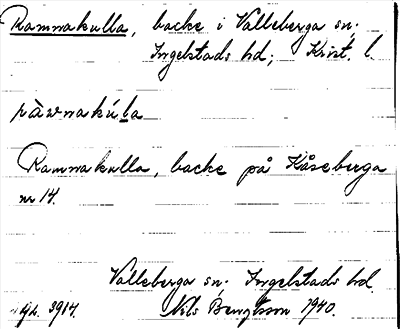 Ramnakulla, backe i Valleberga sn;
Ingelstads hd; Krist. l.
ràvnakúla
Ramnakulla, backe på Kåseberga
nr 14.
Valleberga sn; Ingelstads hd
Nils Bengtsson 1940.
3914.